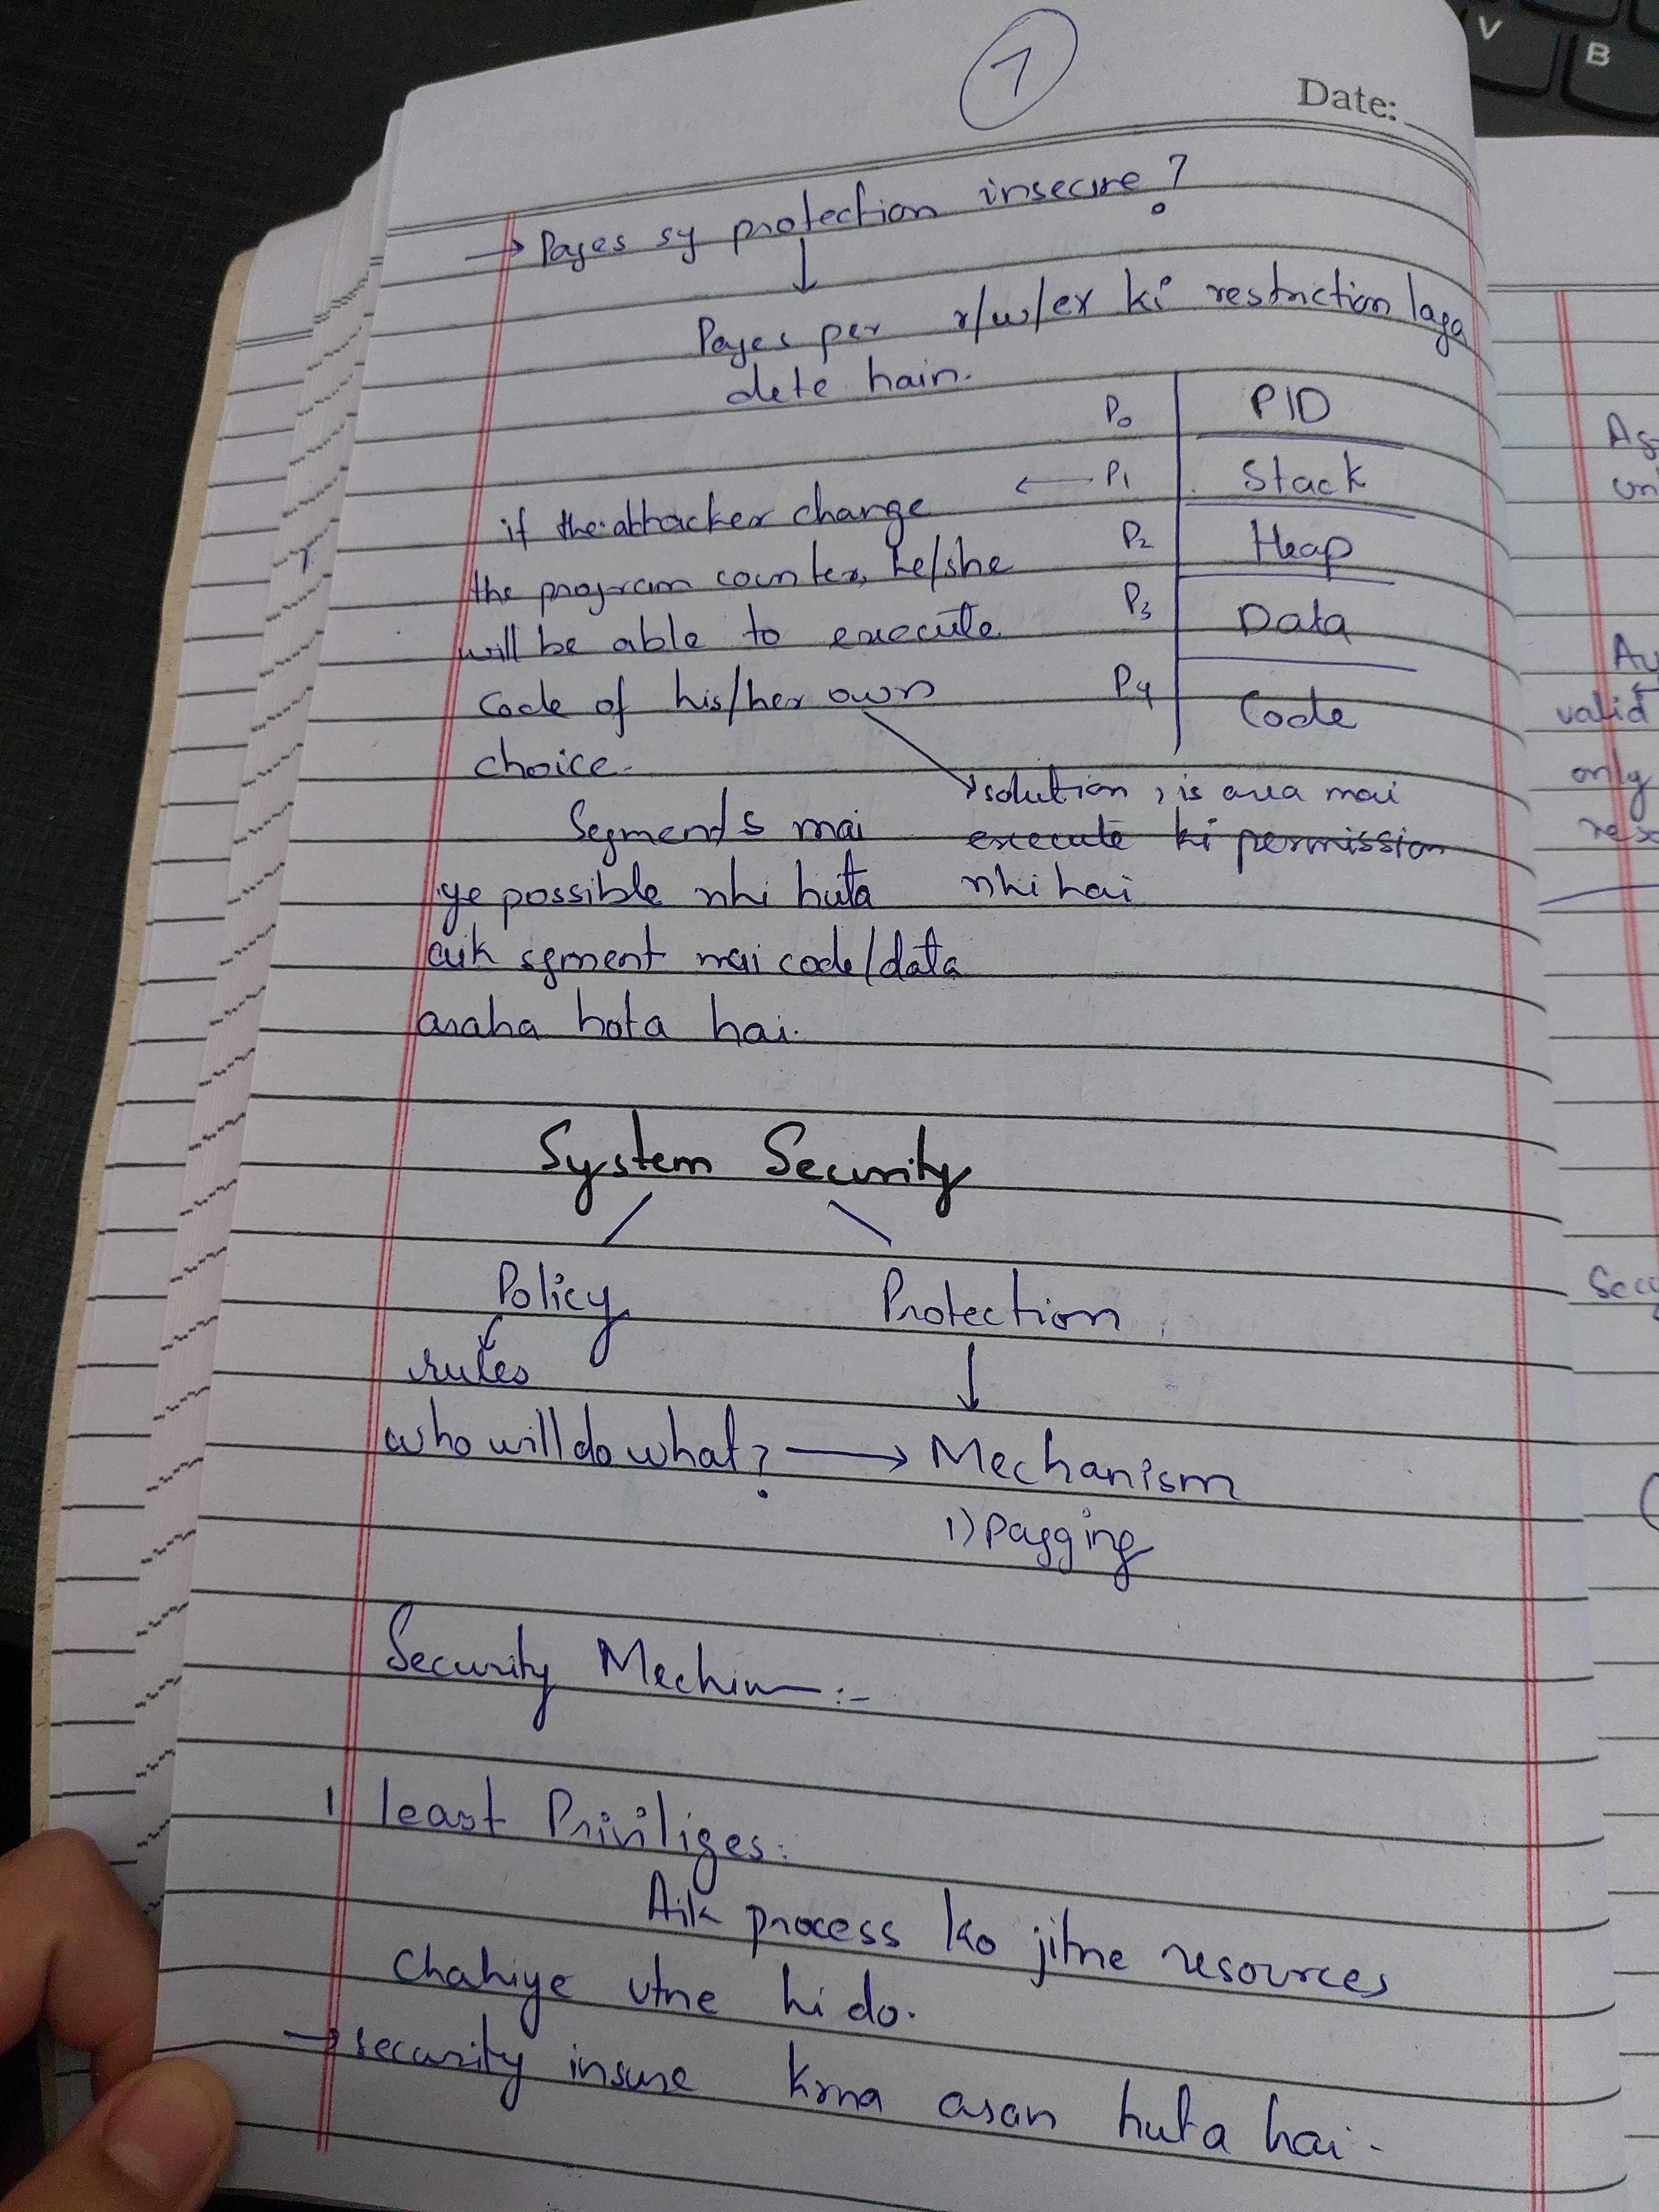 1
Date:
→ Pages sy protection insecure?
↓
Pages per r/w/ex ki restriction laga
dete hain.
P0 PID
← P1 Stack
P2 Heap
P3 Data
P4 Code
if the attacker change
the program counter, he/she
will be able to execute
code of his/her own
choice.
solution, is area mai
execute ki permission
nhi hai
Segments mai
ye possible nhi huta
aik sgment mai code/data
araha hota hai.
System Security
Policy Protection
rules ↓
who will do what? → Mechanism
1) Pagging
Security :-
1 least Priviliges:
Aik process ko jitne resources
chahiye utne hi do.
→ security insure krna asan huta hai.
V
B
valid
only